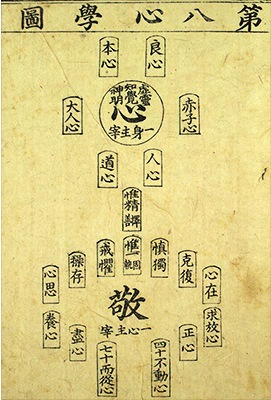 第八心學圖
良心
本心
虛靈
知覺
神明
心
一身主宰
赤子心
大人心
人心
道心
惟精
擇善
惟一
固執
愼獨
戒懼
克復
操存
心在
心思
求放心
養心
正心
盡心
敬
一心主宰
四十不動心
七十而從心